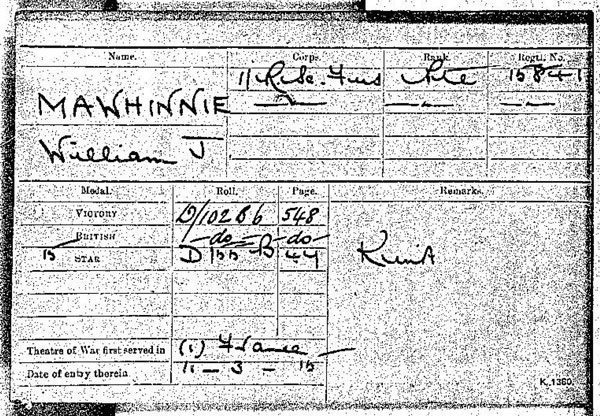 Name. Corps. Rank. Regtl. No.
Pte 15841
MAWHINNIE
William J
Medal. Roll. Page. Remarks.
VICTORY D/102 B6 548
BRITISH —do— do
15 STAR D 44
Theatre of War first served in (1) France
Date of entry therein 11 - 3 - 15
K. 1380.